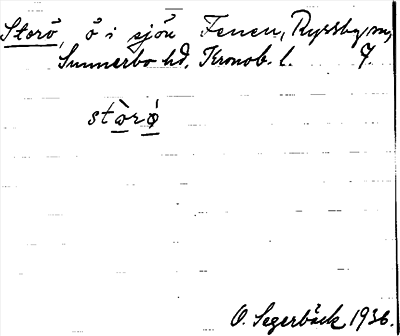 Storö, ö i sjön Fenen, Ryssby sn,
Sunnerbo hd. Kronob. l. 7.
stòrǿ
O. Segerbäck 1936.